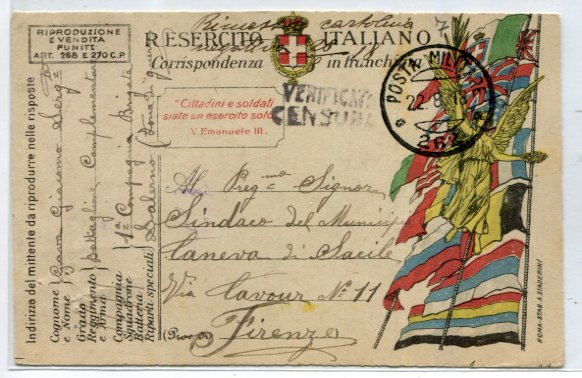 RIPRODUZIONE
E VENDITA
PUNITI
ART. 268 E 270 C.P.
cartolina
R. ESERCITO ITALIANO
Corrispondenza in franchi
"Cittadini e soldati
siate un esercito solo"
V. Emanuele III.
VERIFICATO
CENSURA
POSTA MILITARE
22.8.
262
Al Preg.mo Signor
Sindaco del Municipio
Caneva di Sacile
Via Cavour N° 11
(Prov. di) Firenze
Indirizzo del mittente da riprodurre nelle risposte
Cognome e Nome Giacomo Serg.
Grado
Reggimento e Arma Battaglione Complementare
Compagnia Squadrone Batteria 1ª Compagnia Brigata
Riparti speciali Salerno
ROMA-STAB. A. STADERINI